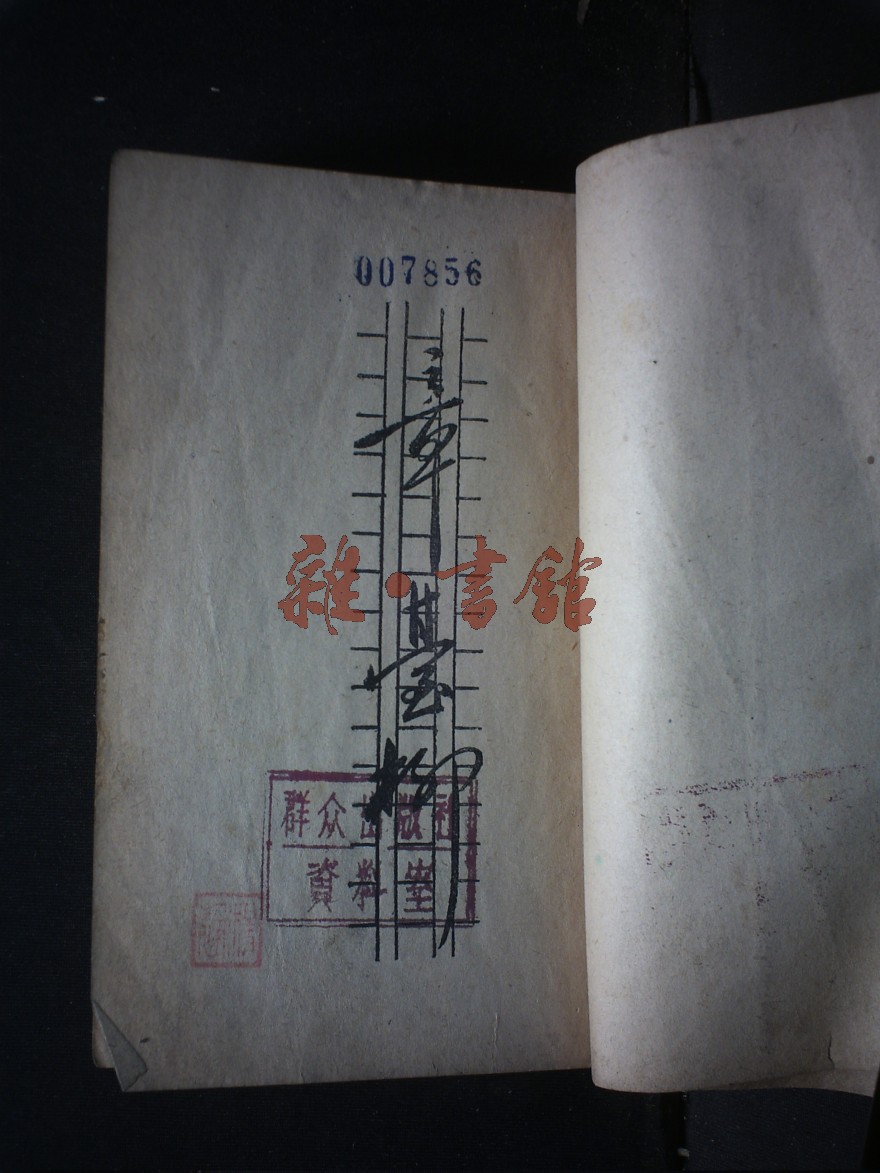 007856
章臺柳
雜·書館
群众出版社
資料室